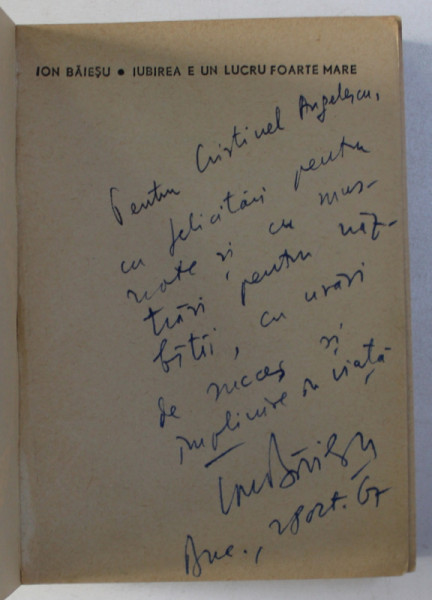 ION BĂIEȘU • IUBIREA E UN LUCRU FOARTE MARE
Pentru Cristinel Angelescu,
cu felicitări pentru
note și cu mus-
trări pentru năz-
bîtii, cu urări
de succes și
împlinire în viață
Ion Băieșu
Buc., 28 oct. 67